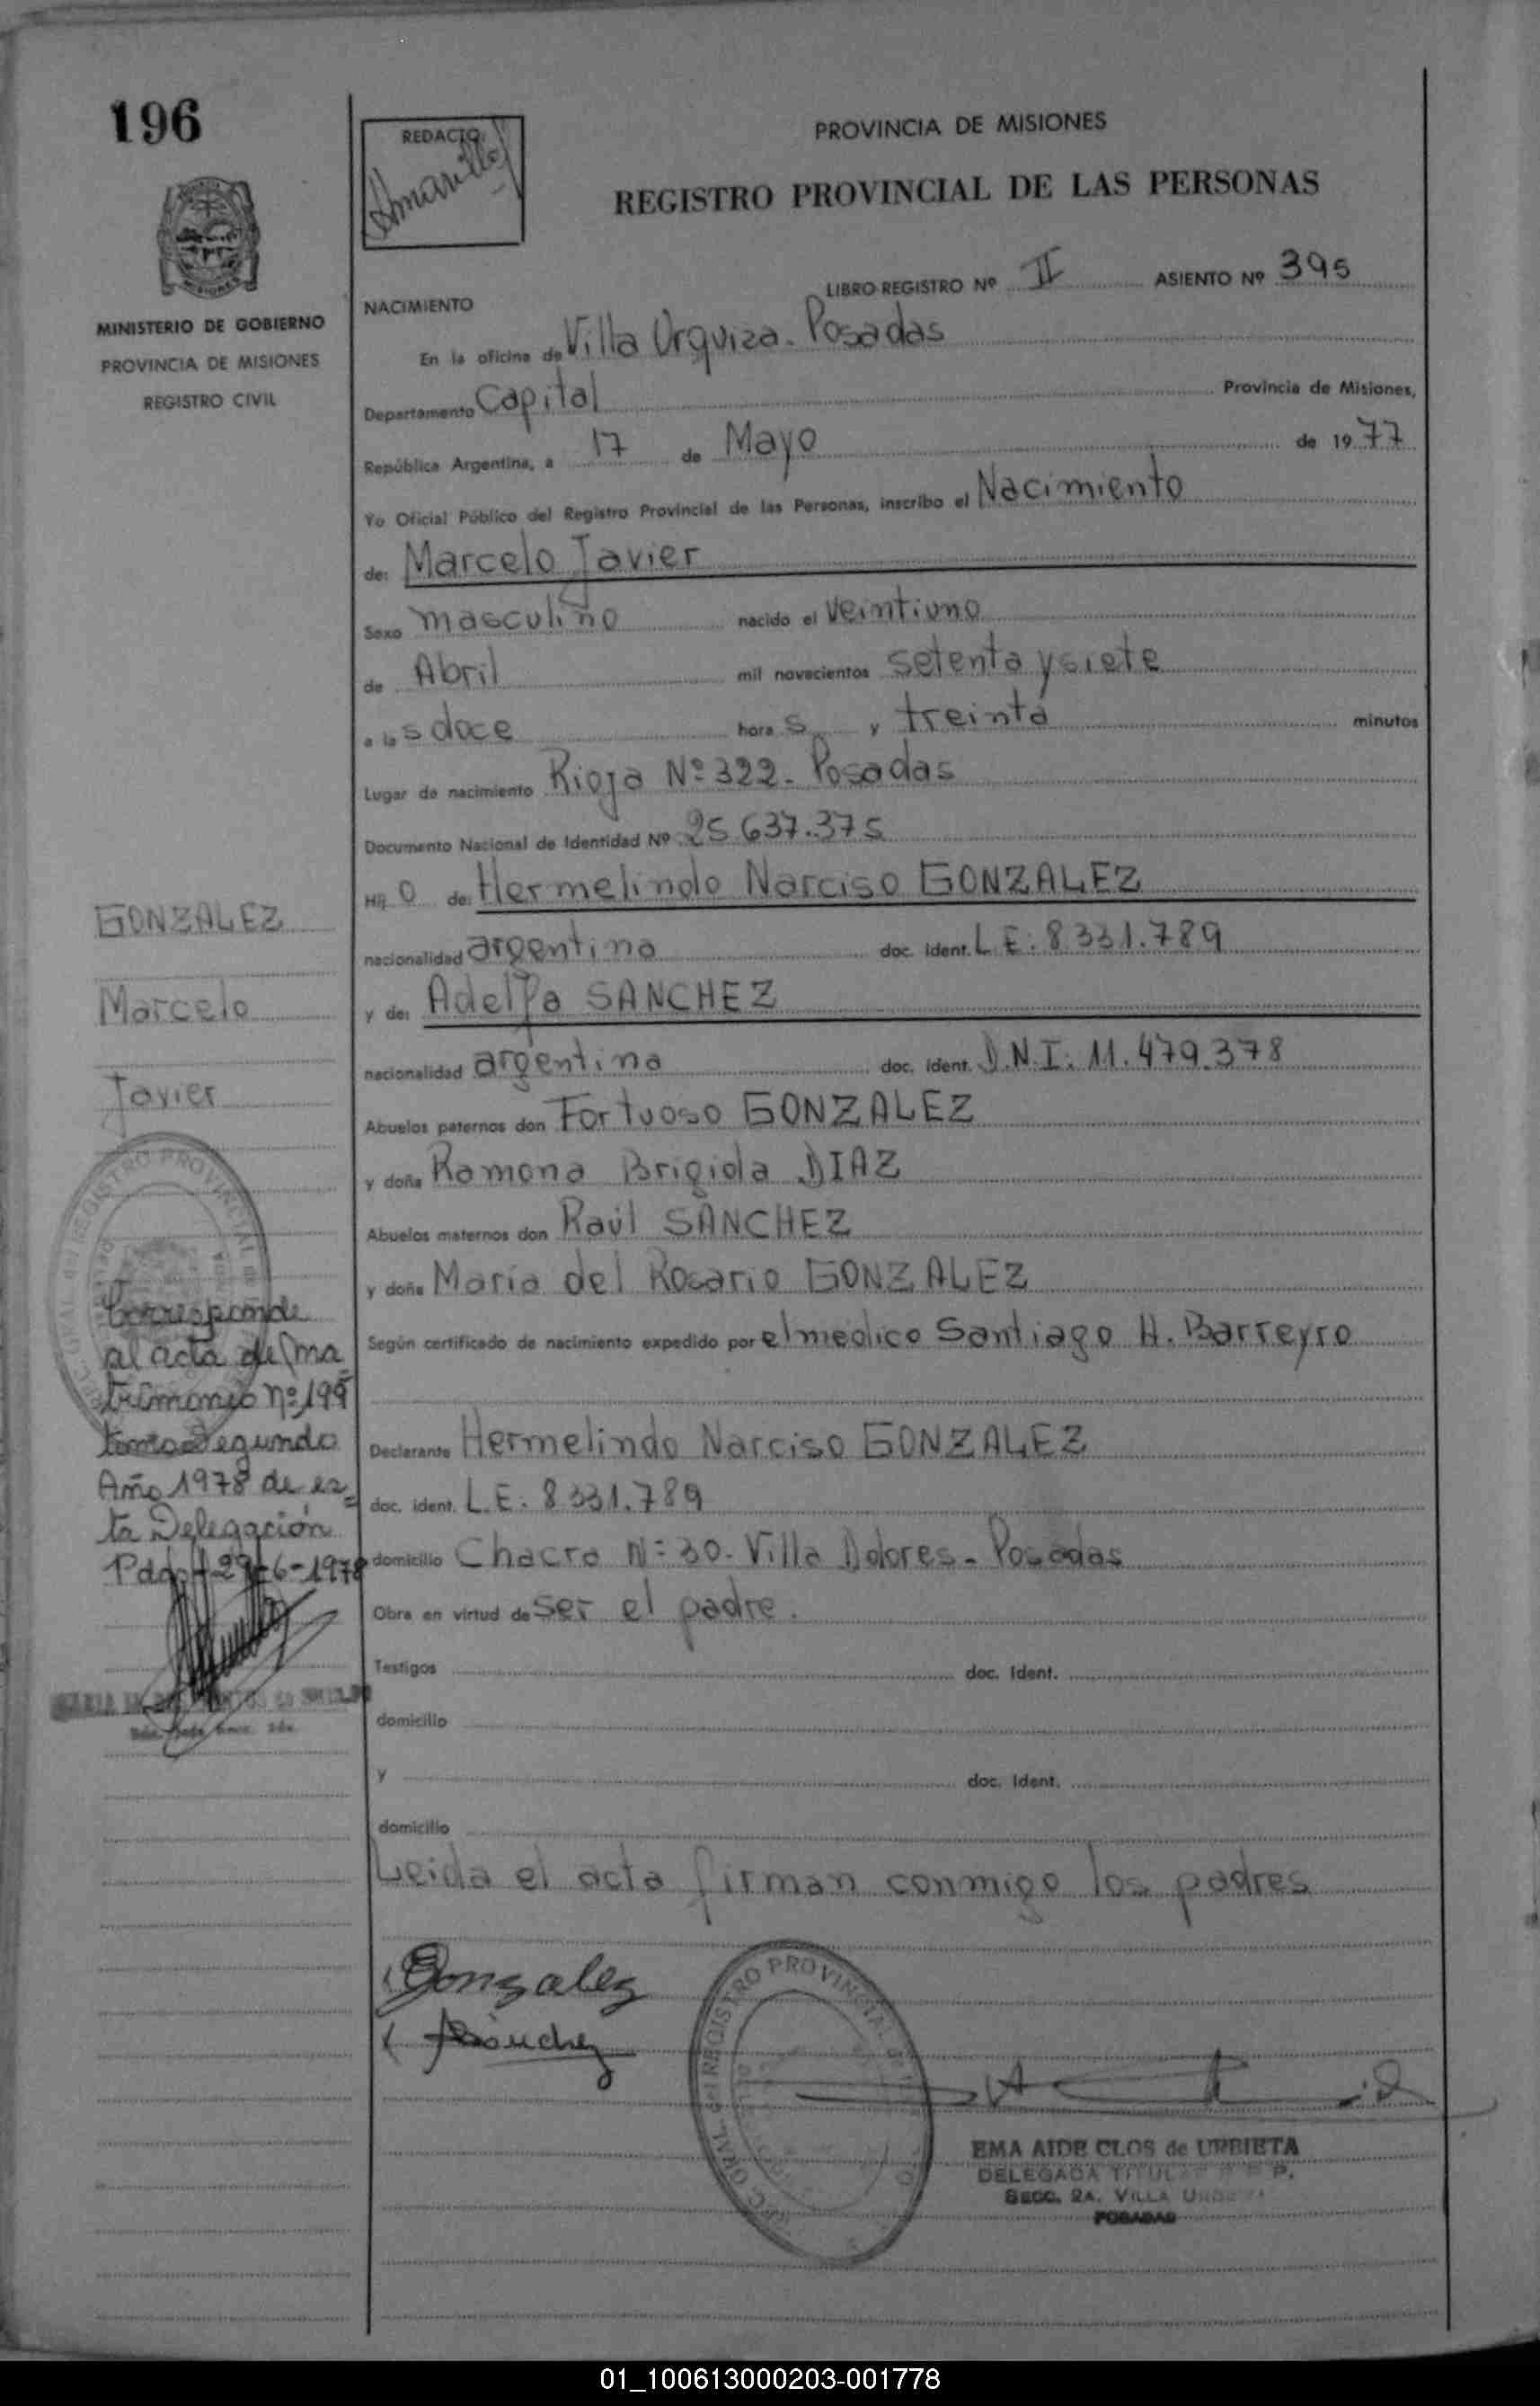 196
REDACTO:
Amarilla
PROVINCIA DE MISIONES
REGISTRO PROVINCIAL DE LAS PERSONAS
MINISTERIO DE GOBIERNO
PROVINCIA DE MISIONES
REGISTRO CIVIL
LIBRO REGISTRO Nº II ASIENTO Nº 395
NACIMIENTO
En la oficina de Villa Urquiza. Posadas
Departamento Capital Provincia de Misiones,
República Argentina, a 17 de Mayo de 1977
Yo Oficial Público del Registro Provincial de las Personas, inscribo el Nacimiento
de: Marcelo Javier
Sexo masculino nacido el veintiuno
de Abril mil novecientos setenta y siete
a las doce horas y treinta minutos
Lugar de nacimiento Rioja Nº 322 - Posadas
Documento Nacional de Identidad Nº 25.637.375
Hijo de: Hermelindo Narciso GONZALEZ
nacionalidad argentino doc. ident. L.E: 8.331.789
y de: Adelfa SANCHEZ
nacionalidad argentina doc. ident. D.N.I: 11.479.378
Abuelos paternos don Fortuoso GONZALEZ
y doña Ramona Brigida DIAZ
Abuelos maternos don Raúl SANCHEZ
y doña María del Rosario GONZALEZ
Según certificado de nacimiento expedido por el medico Santiago H. Barreyro
Declarante Hermelindo Narciso GONZALEZ
doc. ident. L.E: 8.331.789
domicilio Chacra Nº 30 - Villa Dolores - Posadas
Obra en virtud de ser el padre.
Testigos doc. ident.
domicilio
y doc. ident.
domicilio
Leida el acta firman conmigo los padres
Gonzalez
Sánchez
GONZALEZ
Marcelo
Javier
Corresponde
al acta de ma
trimonio nº 199
tomo Segundo
Año 1978 de es
ta Delegación
Pdas 29-6-1978
REGISTRO PROVINCIAL
EMA AIDE CLOS de URBIETA
DELEGADA TITULAR R. P. P.
SECC. 2A. VILLA URQUIZA
POSADAS
01_100613000203-001778